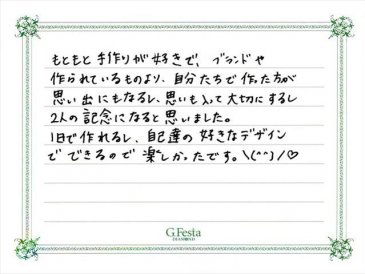 もともと手作りが好きで、ブランドや
作られているものより、自分たちで作った方が
思い出にもなるし、思いも入って大切にするし
2人の記念になると思いました。
1日で作れるし、自己達の好きなデザイン
でできるので楽しかったです。\(^^)/♡
G.Festa
DIAMOND